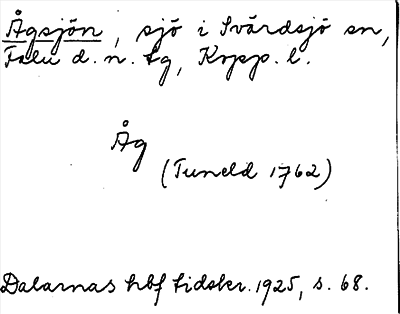 Ågsjön, sjö i Svärdsjö sn,
Falu d. n. tg, Kopp. l.
Åg
(Tuneld 1762)
Dalarnas hbf tidskr. 1925, s. 68.